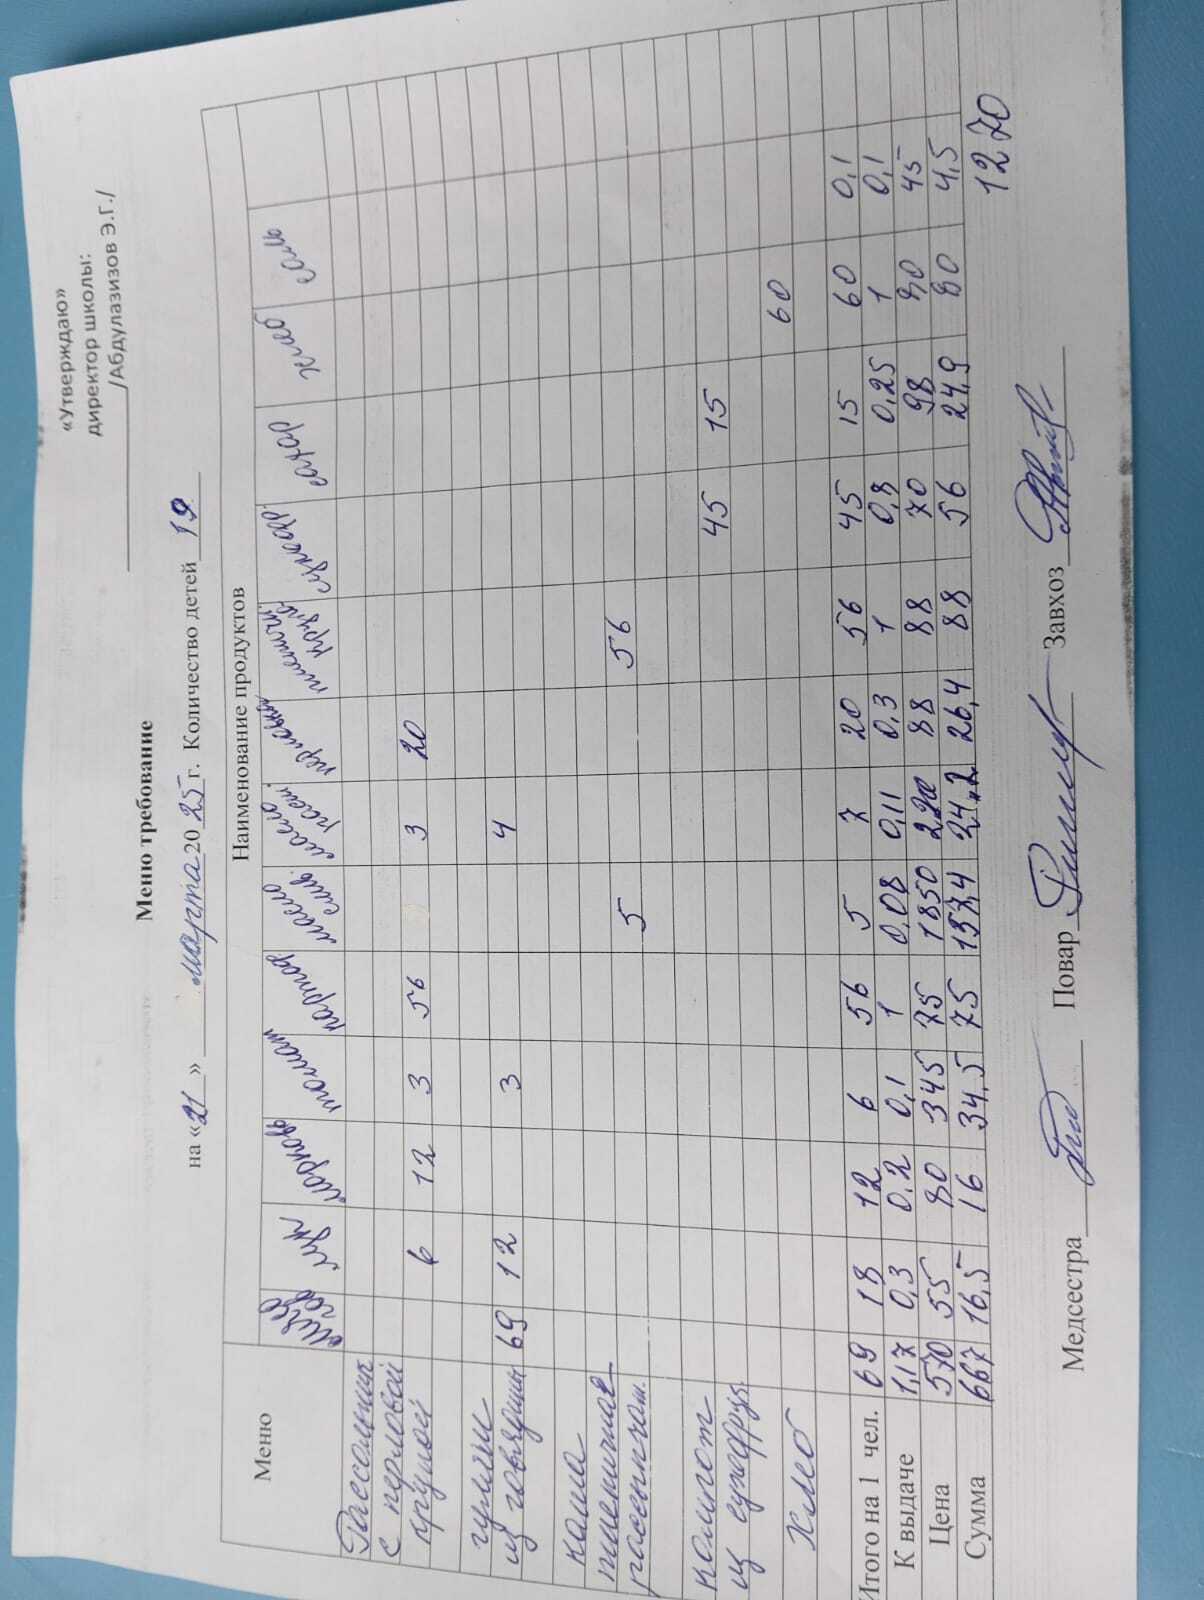 «Утверждаю»
директор школы:
/Абдулазизов Э.Г./
Меню требование
на «21» марта 2025 г. Количество детей 19
Меню Наименование продуктов
мясо гов лук морковь томат картоф масло слив. масло раст. перловка пшеничн. крупа сухофр. сахар хлеб соль
Рассольник
с перловой
крупой 6 12 3 56 3 20
гуляш
из говядины 69 12 3 4
каша
пшеничная
рассыпчат. 5 56
компот
из сухофрук. 45 15
Хлеб 60
Итого на 1 чел. 69 18 12 6 56 5 7 20 56 45 15 60 0,1
К выдаче 1,17 0,3 0,2 0,1 1 0,08 0,11 0,3 1 0,8 0,25 1 0,1
Цена 570 55 80 345 75 1850 220 88 88 70 98 80 45
Сумма 667 16,5 16 34,5 75 137,4 24,2 26,4 88 56 24,9 80 4,5
1270
Медсестра Повар Завхоз